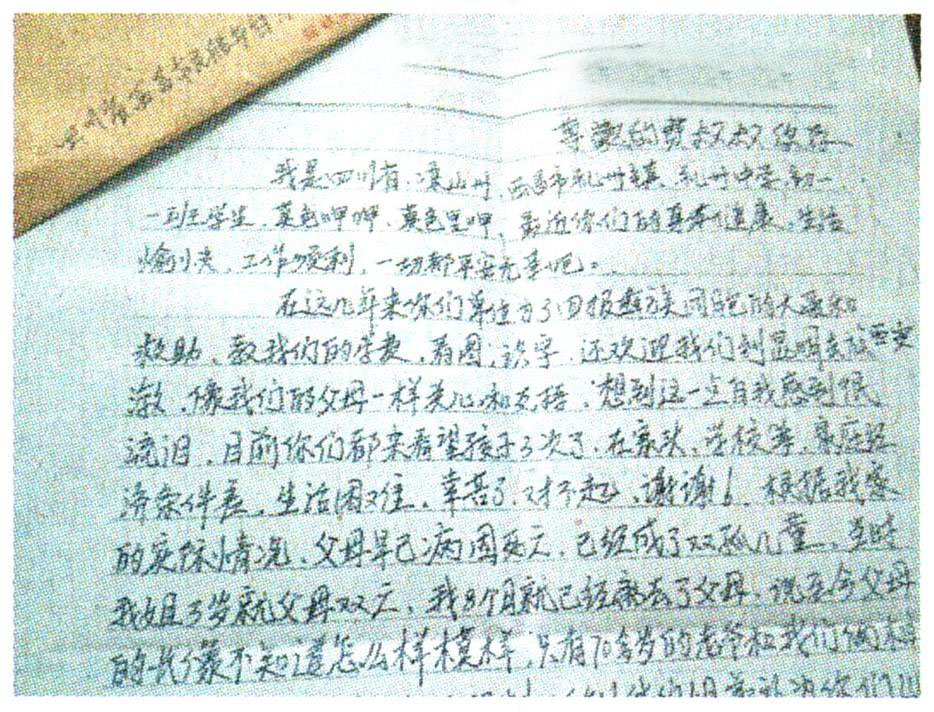 尊敬的费叔叔你好
我是四川省、凉山州、西昌市礼州镇、礼州中学初一
一班学生，莫色呷呷、莫色里呷、最近你们的身体健康，生活
愉快、工作顺利，一切都平安无事吧。
在这几年来你们单位为了回报彝族同胞的大恩和
救助、教我们的学费，看图、识字、还欢迎我们到昆明去
激、像我们的父母一样关心和支持，想到这一点自我感到很
流泪，目前你们都来看望孩子3次了、在家头、学校等，家庭经
济条件差，生活困难住，辛苦了，对不起，谢谢！ 根据我家
的实际情况，父母早已病因死亡，已经成了双孤儿童，当时
我姐3岁就父母双亡，我8个月就已经离去了父母，说至今父母
的长像不知道怎么样模样，只有70多岁的老爷和我们俩